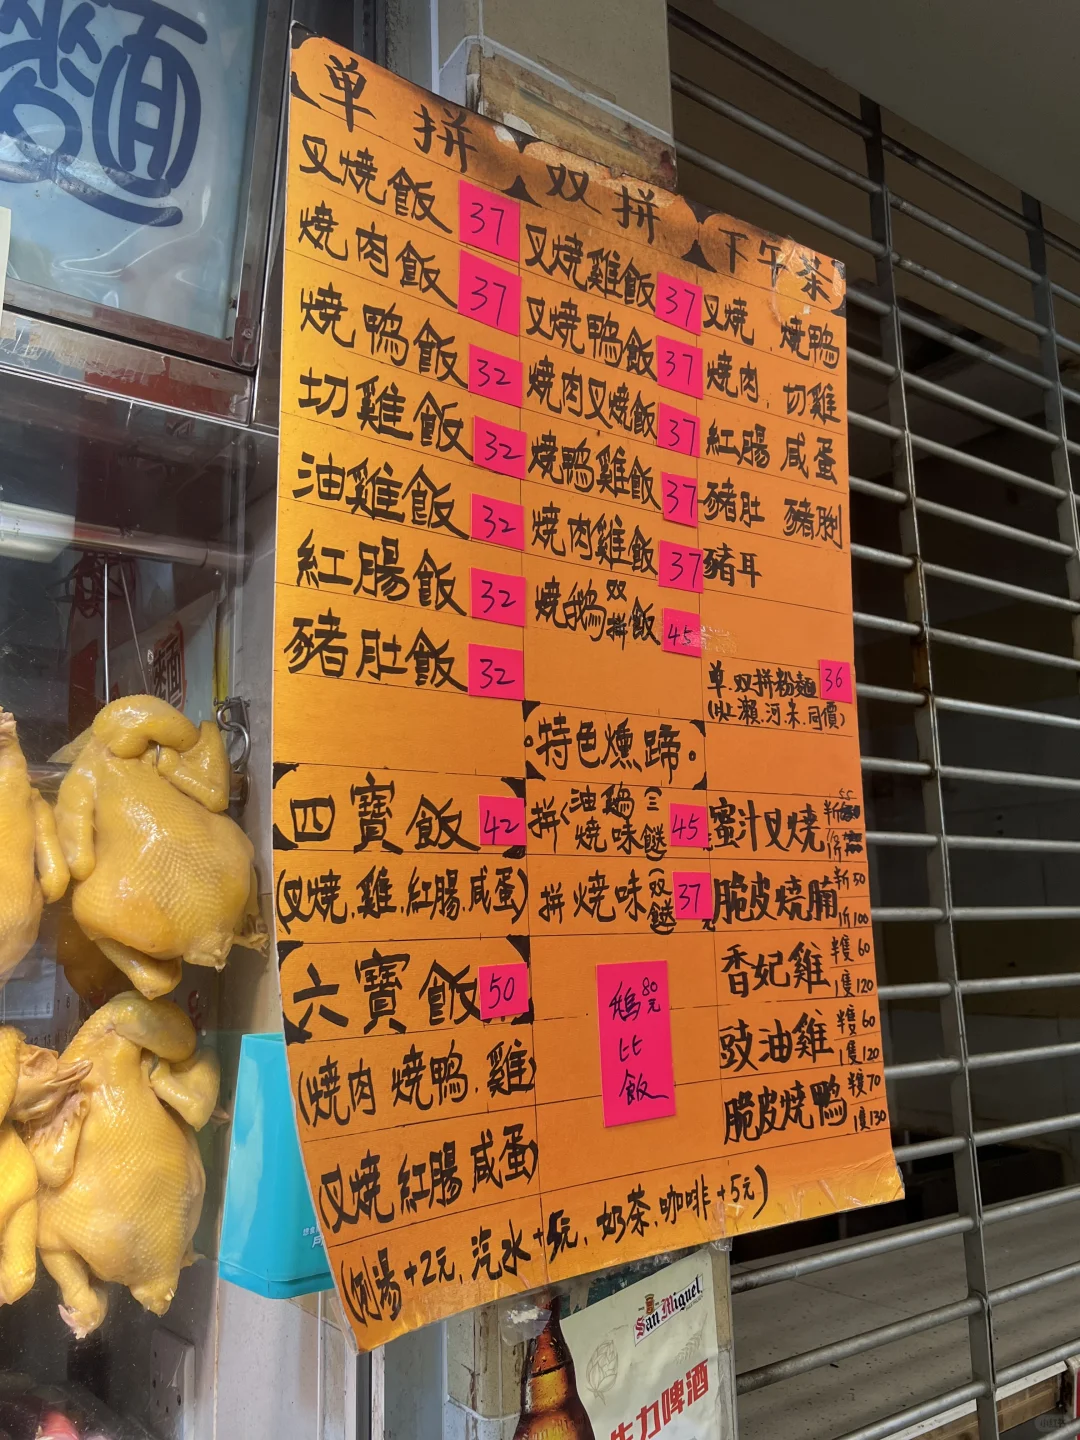 麵
单拼
叉燒飯 37
燒肉飯 37
燒鴨飯 32
切雞飯 32
油雞飯 32
紅腸飯 32
豬肚飯 32
四寶飯 42
(叉燒.雞.紅腸.咸蛋)
六寶飯 50
(燒肉 燒鴨.雞
叉燒.紅腸.咸蛋)
双拼
叉燒雞飯 37
叉燒鴨飯 37
燒肉叉燒飯 37
燒鴨雞飯 37
燒肉雞飯 37
燒鵝双拼飯 45
特色燻蹄
拼 油鷄 燒味 45
拼燒味 37
鵝 80元
比
飯
下午茶
叉燒 . 燒鴨
燒肉 . 切雞
紅腸 咸蛋
豬肚 豬脷
豬耳
单.双拼粉麵 36
瀨.河.米.同價)
蜜汁叉燒
脆皮燒腩 50
1斤100
香妃雞 半隻60
1隻120
豉油雞 半隻60
1隻120
脆皮燒鴨 半隻70
1隻130
(例湯+2元.汽水+5元.奶茶.咖啡+5元)
麵
San Miguel
生力啤酒
小红书